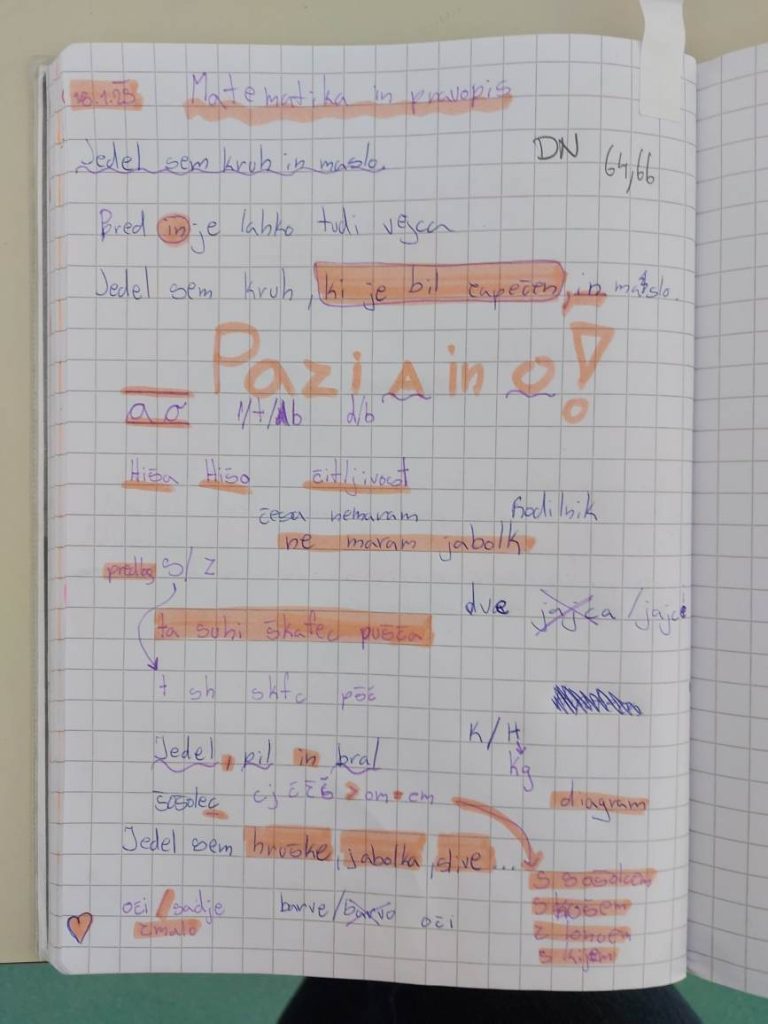 Matematika in pravopis
Jedel sem kruh in maslo.
DN 64,66
Pred in je lahko tudi vejica
Jedel sem kruh, ki je bil zapečen, in maslo.
Pazi A in O!
a o l/t/ b d/b
Hiša Hišo čitljivost
česa nemaram Rodilnik
ne maram jabolk
predlog S/Z
dve jajca /jajci
ta suhi škafec pušča
t sh škfc pšč
K/H
Kg
Jedel, pil in bral
sošolec cj čžš > om → em
diagram
Jedel sem hruške, jabolka, slive ...
s sošolcem
s košem
z loncem
s kijem
oči / sadje
barve/barvo oči
z malo